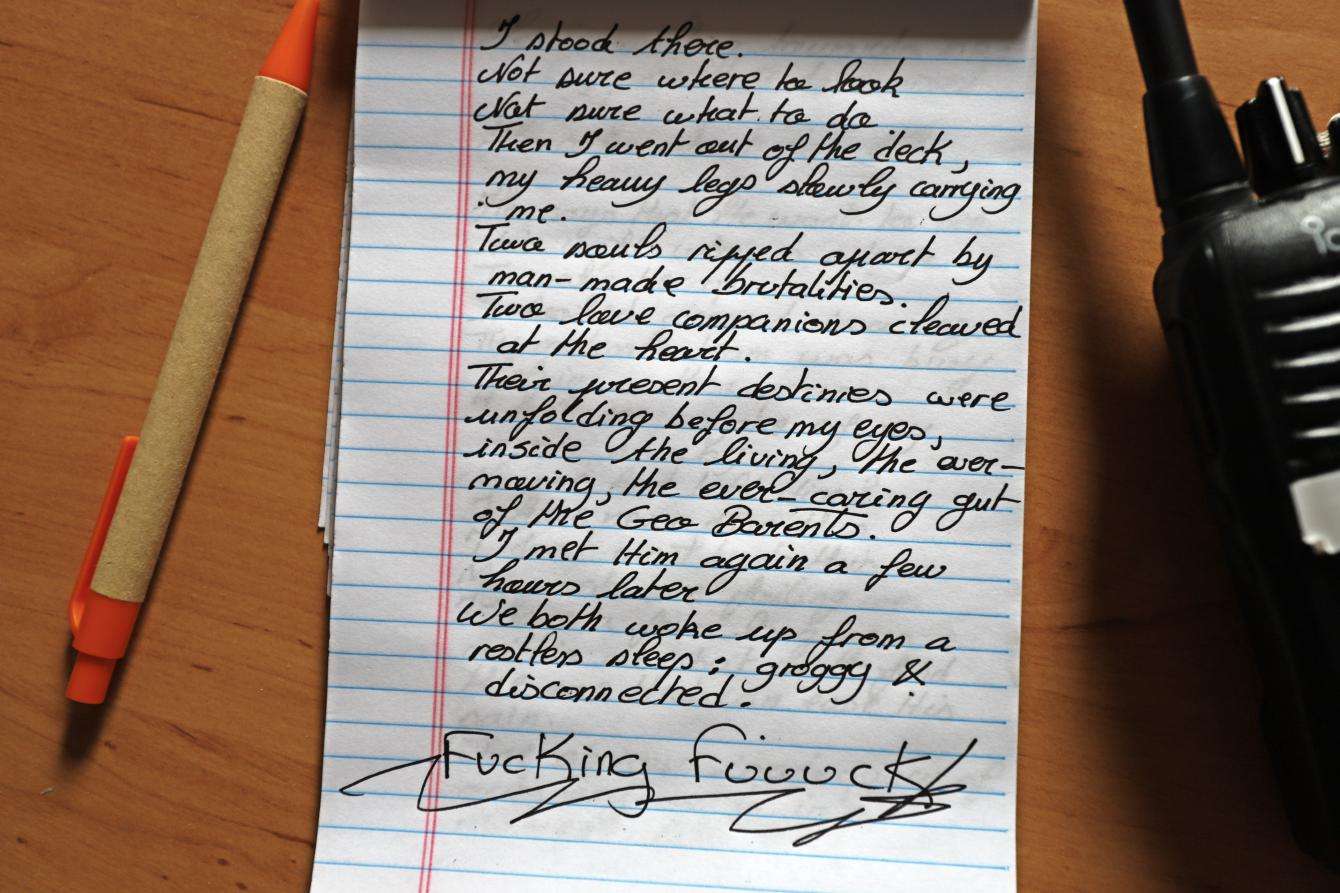 I stood there.
Not sure where to look
Not sure what to do
Then I went out of the deck,
my heavy legs slowly carrying
me.
Two souls ripped apart by
man-made brutalities.
Two love companions cleaved
at the heart.
Their present destinies were
unfolding before my eyes,
inside the living, the over-
moving, the ever-caring gut
of the Geo Barents.
I met Him again a few
hours later
We both woke up from a
restless sleep; groggy &
disconnected.
Fucking fuuuck